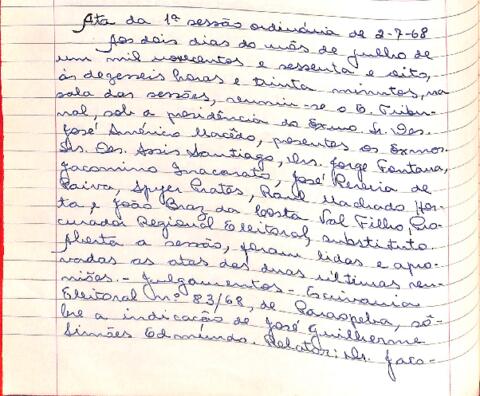 Ata da 1ª sessão ordinária de 2-7-68
Aos dois dias do mês de julho de
um mil novecentos e sessenta e oito,
às dezesseis horas e trinta minutos, na
sala das sessões, reuniu-se o E. Tribu-
nal, sob a presidência do Exmo. Sr. Des.
José Américo Macêdo, presentes os Exmos.
Srs. Des. Assis Santiago, Drs. Jorge Fontana,
Jacomino Inacarato, José Pereira de
Paiva, Spyer Prates, Raul Machado Hor-
ta, e João Braz da Costa Val Filho, Pro-
curador Regional Eleitoral, substituto.
Aberta a sessão, foram lidas e apro-
vadas as atas das duas últimas reu-
niões. - Julgamentos - Escrivania
Eleitoral nº 83/68, de Paraopeba, sô-
bre a indicação de José Guilherme
Simões Edmundo. Relator: Dr. Jaco-